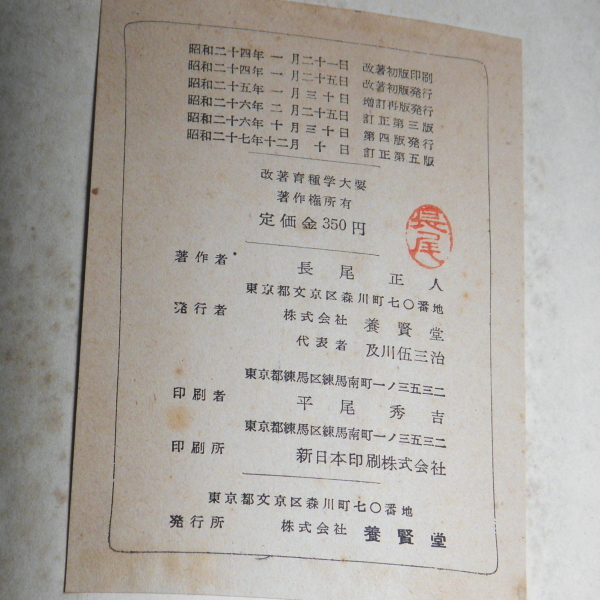 昭和二十四年一月二十一日 改著初版印刷
昭和二十四年一月二十五日 改著初版発行
昭和二十五年一月三十日 増訂再版発行
昭和二十六年二月二十五日 訂正第三版
昭和二十六年十月三十日 第四版発行
昭和二十七年十二月十日 訂正第五版
改著育種学大要
著作権所有
定価金350円
長尾
著作者 長尾正人
東京都文京区森川町七〇番地
発行者 株式会社 養賢堂
代表者 及川伍三治
東京都練馬区練馬南町一ノ三五三二
印刷者 平尾秀吉
東京都練馬区練馬南町一ノ三五三二
印刷所 新日本印刷株式会社
東京都文京区森川町七〇番地
発行所 株式会社 養賢堂